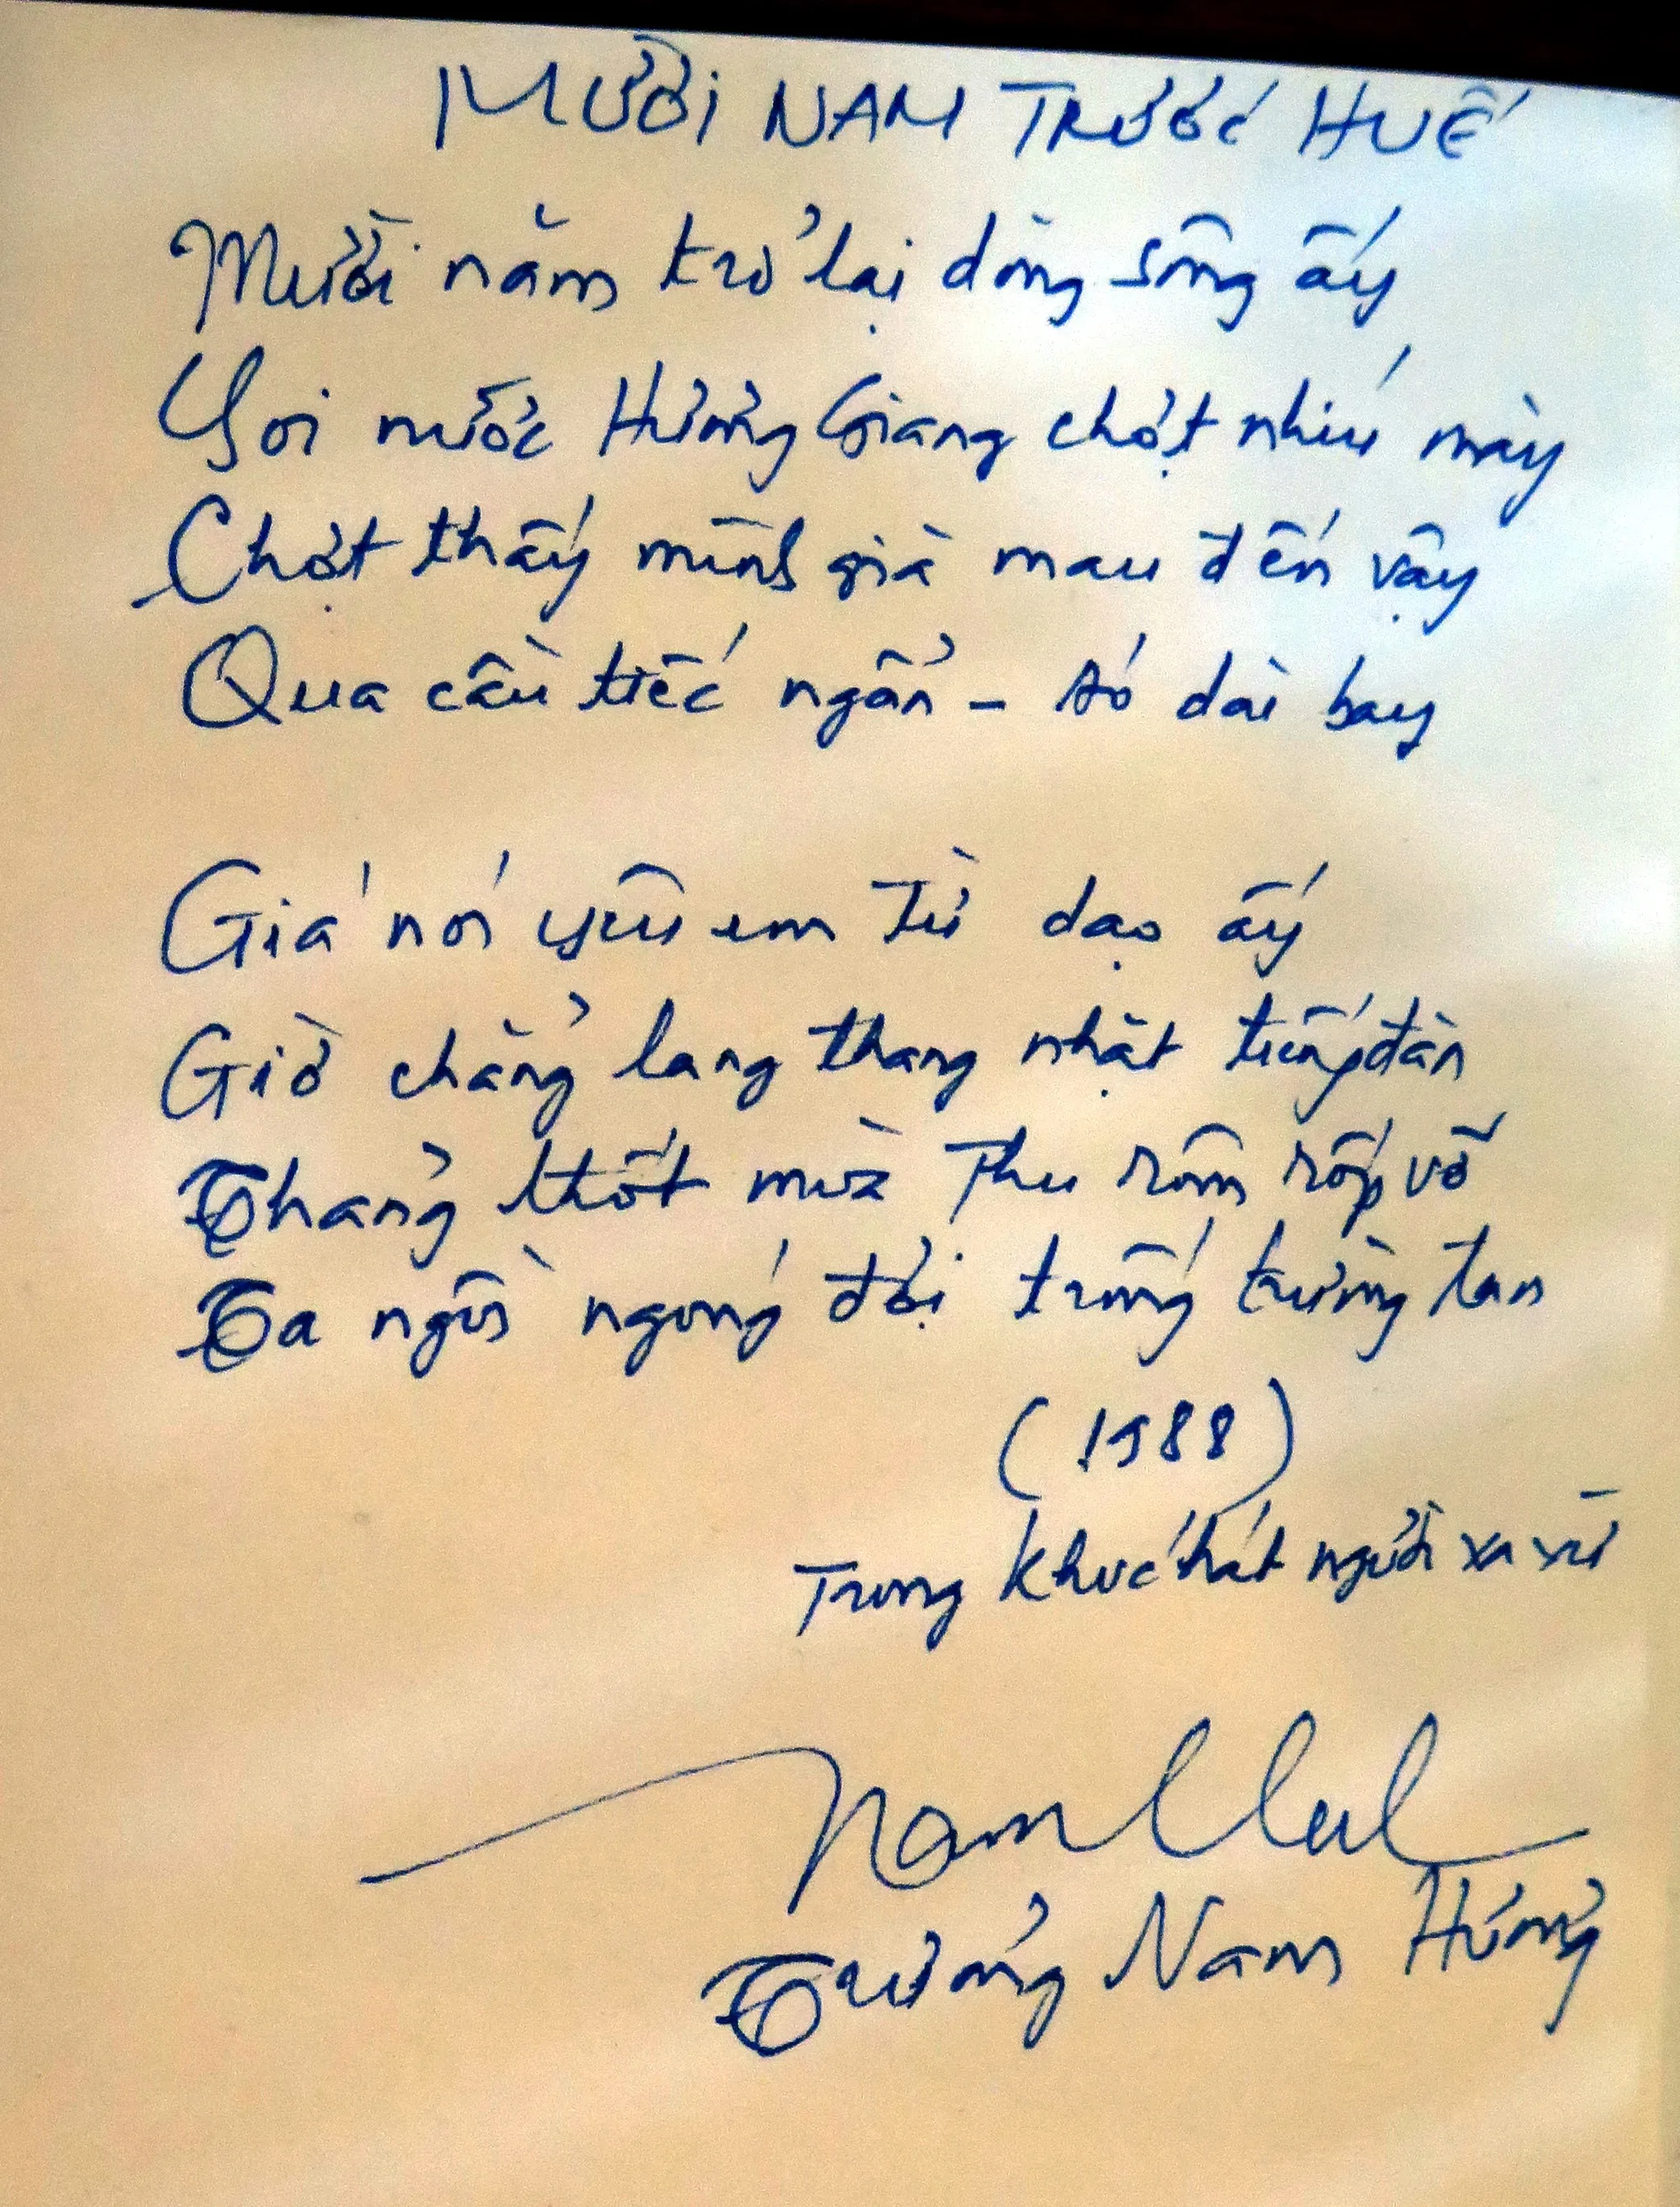 MƯỜI NĂM TRƯỚC HUẾ
Mười năm trở lại dòng sông ấy
Soi nước Hương Giang chợt nhíu mày
Chợt thấy mình già mau đến vậy
Qua cầu tiếc ngẩn - áo dài bay
Giá nói yêu em từ dạo ấy
Giờ chẳng lang thang nhặt tiếng đàn
Thảng thốt mùa Thu rôm rốp vỡ
Ta ngồi ngóng đợi trống trường tan
(1988)
Trong Khúc hát người xa xứ
Trương Nam Hương